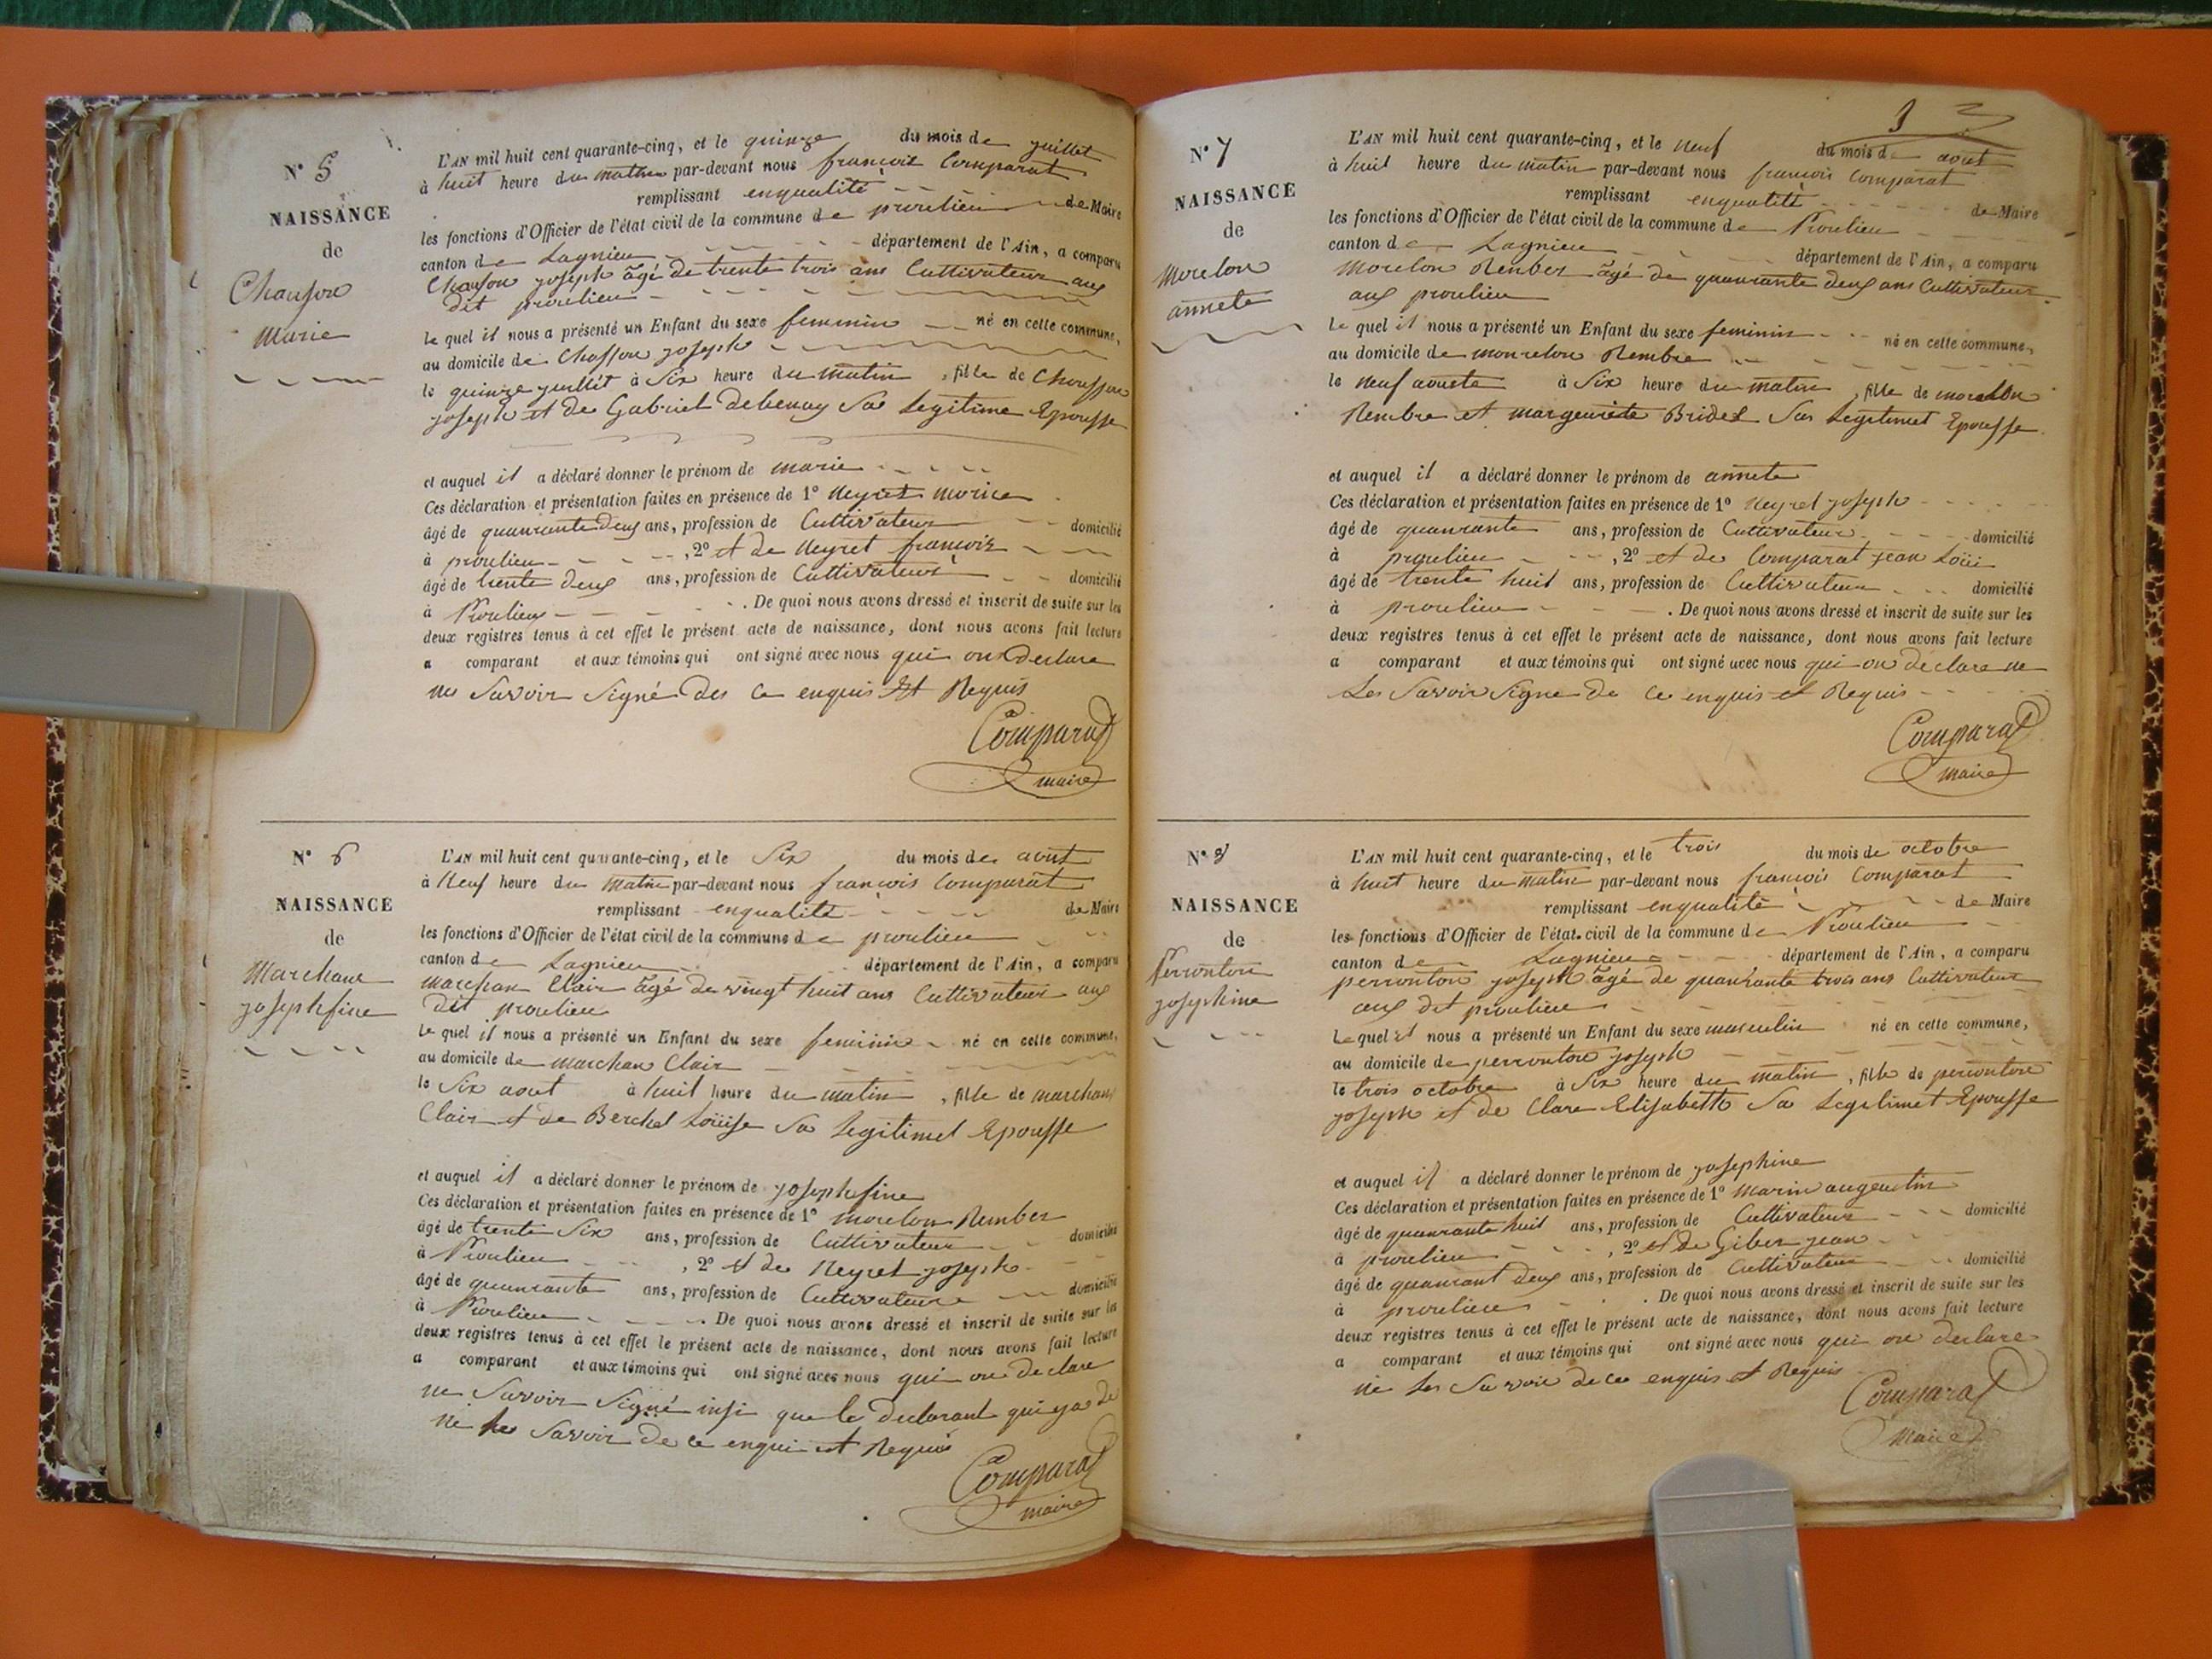 N° 5
NAISSANCE
de
Chaufon
Marie
L'AN mil huit cent quarante-cinq, et le quinze du mois de juillet
à huit heure du matin par-devant nous francois Comparat
remplissant enqualité de Maire
les fonctions d'Officier de l'état civil de la commune de proulieu
canton de Lagnieu département de l'Ain, a comparu
Chaufon joseph âgé de trente trois ans Cultivateur aux
dit proulieu
le quel il nous a présenté un Enfant du sexe feminin né en cette commune,
au domicile de Choffon joseph
le quinze juillet à Six heure du matin, fille de Chouffon
joseph et de Gabriel debenay Sa Legitime Epousse
et auquel il a déclaré donner le prénom de marie
Ces déclaration et présentation faites en présence de 1° Neyret morice
âgé de quanrante deux ans, profession de Cultivateur domicilié
à proulieu, 2° et de Neyret francois
âgé de trente deux ans, profession de Cultivateur domicilié
à Proulieu. De quoi nous avons dressé et inscrit de suite sur les
deux registres tenus à cet effet le présent acte de naissance, dont nous avons fait lecture
a comparant et aux témoins qui ont signé avec nous qui on declare
ne Savoir Signé des ce enquis Et Requis
Comparat
maire
N° 6
NAISSANCE
de
Marchane
josephfine
L'AN mil huit cent quarante-cinq, et le Six du mois de aout
à Neuf heure du matin par-devant nous francois Comparat
remplissant enqualité de Maire
les fonctions d'Officier de l'état civil de la commune de proulieu
canton de Lagnieu département de l'Ain, a comparu
marchan Clair âgé de vingt huit ans Cultivateur aux
dit proulieu
le quel il nous a présenté un Enfant du sexe feminin né en cette commune,
au domicile de marchan Clair
le Six aout à huit heure du matin, fille de marchan
Clair et de Berchet Loüise Sa Legitimet Epousse
et auquel il a déclaré donner le prénom de josephfine
Ces déclaration et présentation faites en présence de 1° morelon Rember
âgé de trente Six ans, profession de Cultivateur domicilié
à Proulieu, 2° et de Neyret joseph
âgé de quanrante ans, profession de Cultivateur domicilié
à Proulieu. De quoi nous avons dressé et inscrit de suite sur les
deux registres tenus à cet effet le présent acte de naissance, dont nous avons fait lecture
a comparant et aux témoins qui ont signé avec nous qui on declare
ne Savoir Signé insi que le declarant qui ya de
ne les Savoir de ce enqui et Requis
Comparat
maire
3
N° 7
NAISSANCE
de
Morelon
annete
L'AN mil huit cent quarante-cinq, et le neuf du mois de aout
à huit heure du matin par-devant nous francois Comparat
remplissant enqualité de Maire
les fonctions d'Officier de l'état civil de la commune de Proulieu
canton de Lagnieu département de l'Ain, a comparu
Morelon Renber âgé de quanrante deux ans Cultivateur
aux proulieu
le quel il nous a présenté un Enfant du sexe feminin né en cette commune,
au domicile de monrelon Rembre
le neuf aouste à Six heure du matin, fille de morelon
Rembre et margeurite Bridel Sas Legitimet Epousse
et auquel il a déclaré donner le prénom de annete
Ces déclaration et présentation faites en présence de 1° Neyret joseph
âgé de quanrante ans, profession de Cultivateur domicilié
à proulieu, 2° et de Comparat jean Loüi
âgé de trente huit ans, profession de Cultivateur domicilié
à proulieu. De quoi nous avons dressé et inscrit de suite sur les
deux registres tenus à cet effet le présent acte de naissance, dont nous avons fait lecture
a comparant et aux témoins qui ont signé avec nous qui on declare ne
Les Savoir Signe de ce enquis et Requis
Comparat
maire
N° 8
NAISSANCE
de
Perronton
josephine
L'AN mil huit cent quarante-cinq, et le trois du mois de octobre
à huit heure du matin par-devant nous francois Comparat
remplissant enqualité de Maire
les fonctions d'Officier de l'état civil de la commune de Proulieu
canton de Lagnieu département de l'Ain, a comparu
perronton joseph âgé de quanrante trois ans Cultivateur
aux dit proulieu
le quel il nous a présenté un Enfant du sexe masculin né en cette commune,
au domicile de perronton joseph
le trois octobre à Six heure du matin, fille de perronton
joseph et de Clare Elisabeth Sa Legitimet Epousse
et auquel il a déclaré donner le prénom de josephine
Ces déclaration et présentation faites en présence de 1° Marin augeustin
âgé de quanrante huit ans, profession de Cultivateur domicilié
à proulieu, 2° et de Giber jean
âgé de quanrant deux ans, profession de Cultivateur domicilié
à proulieu. De quoi nous avons dressé et inscrit de suite sur les
deux registres tenus à cet effet le présent acte de naissance, dont nous avons fait lecture
a comparant et aux témoins qui ont signé avec nous qui on declare
ne les Savoir de ce enquis et Requis
Comparat
Maire